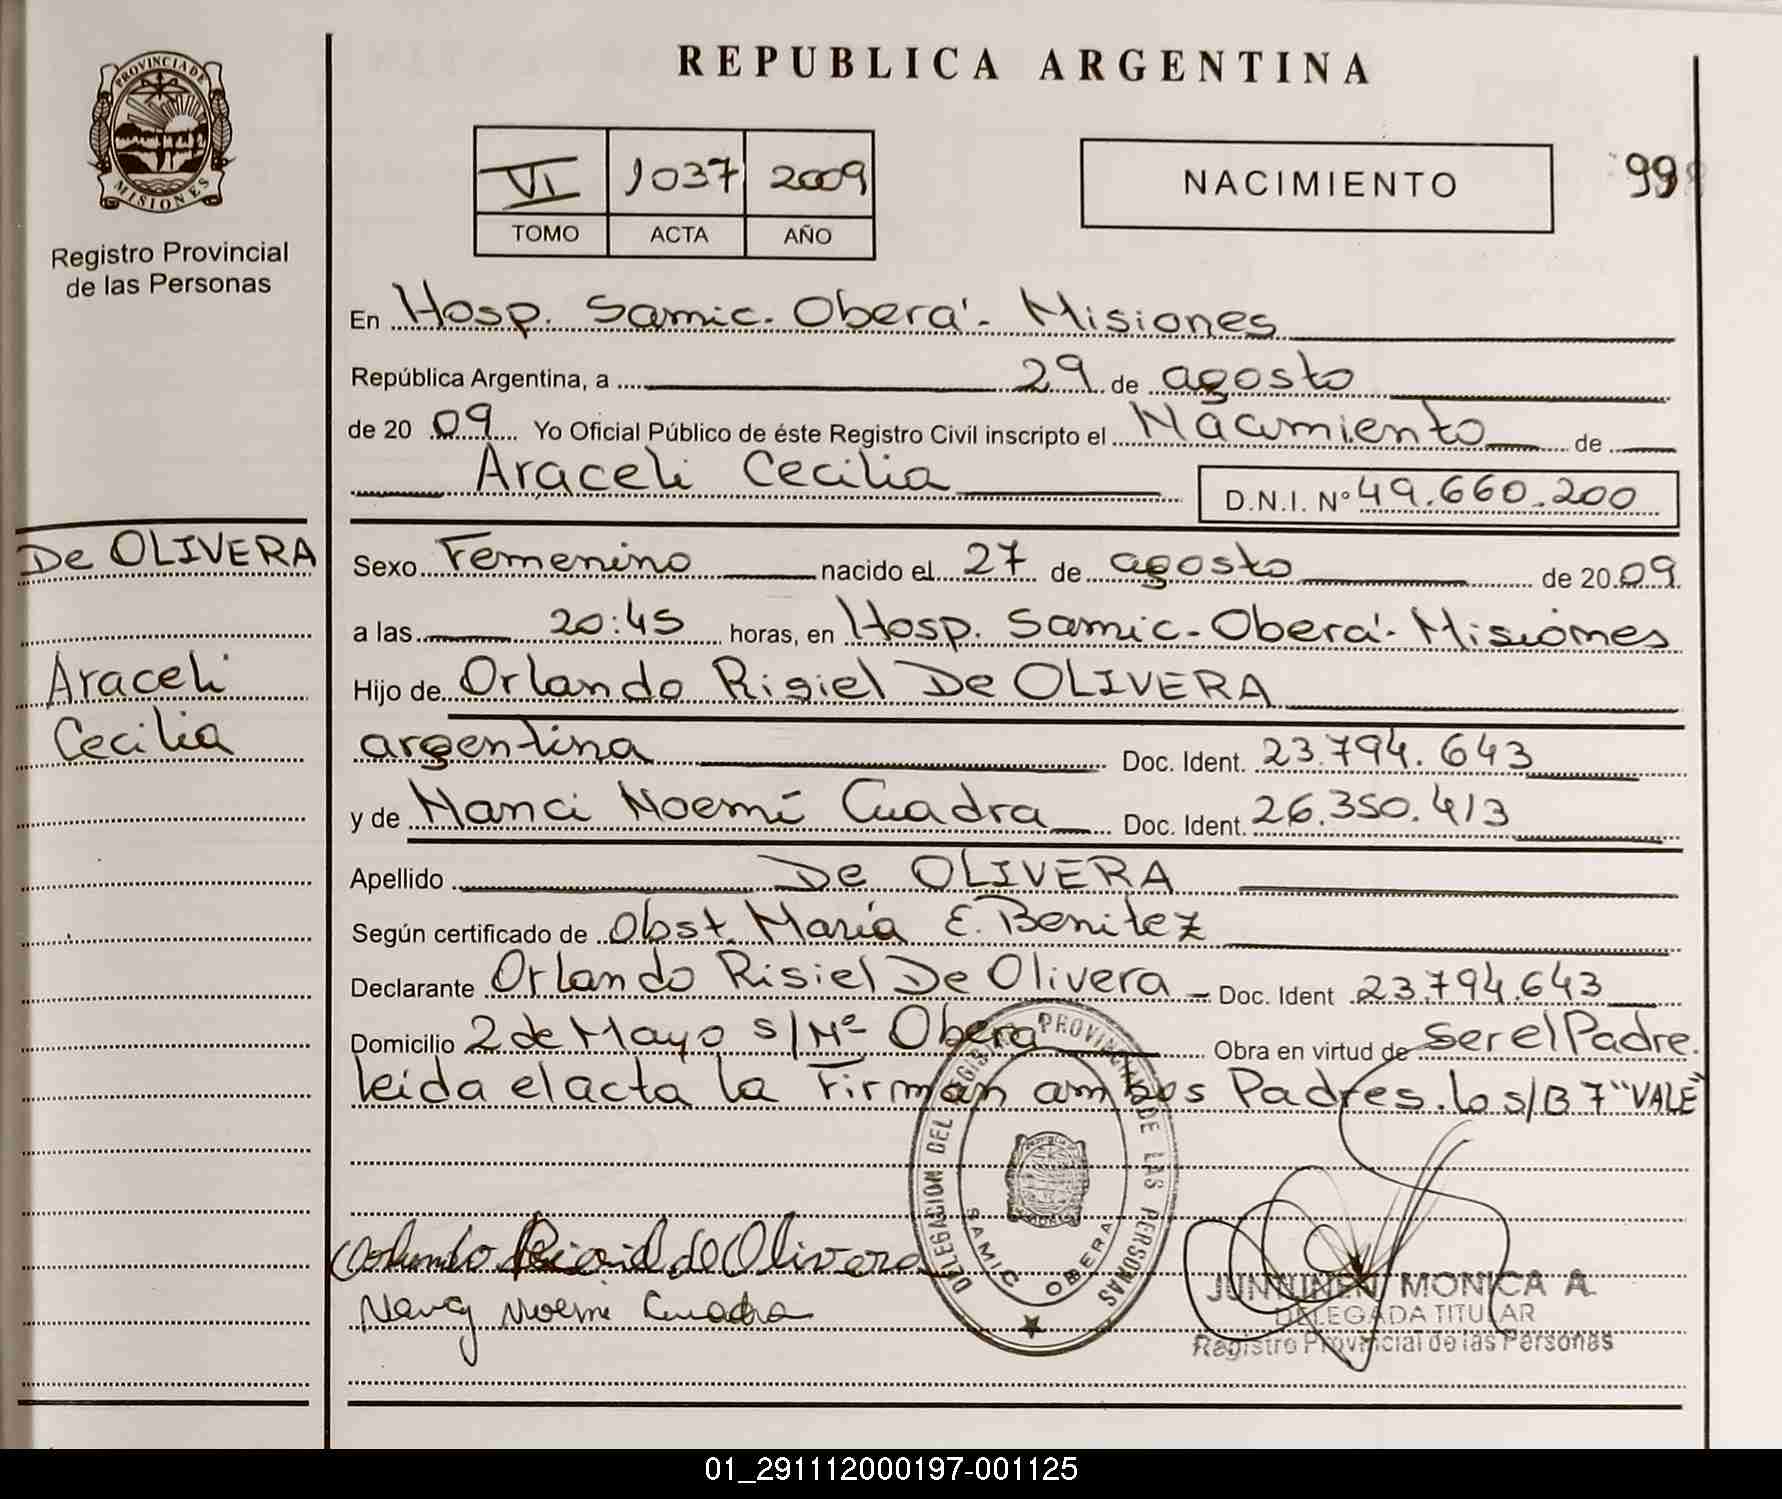 REPUBLICA ARGENTINA
PROVINCIA DE
MISIONES
Registro Provincial
de las Personas
VI 1037 2009
TOMO ACTA AÑO
NACIMIENTO
99
En Hosp. Samic. Oberá - Misiones
República Argentina, a 29 de agosto
de 20 09 Yo Oficial Público de éste Registro Civil inscripto el Nacimiento de
Araceli Cecilia
D.N.I. Nº 49.660.200
De OLIVERA
Araceli
Cecilia
Sexo Femenino nacido el 27 de agosto de 20 09
a las 20:45 horas, en Hosp. Samic - Oberá - Misiones
Hijo de Orlando Risiel De OLIVERA
argentina Doc. Ident. 23.794.643
y de Nanci Noemí Cuadra Doc. Ident. 26.350.413
Apellido De OLIVERA
Según certificado de Obst. María E. Benitez
Declarante Orlando Risiel De Olivera Doc. Ident 23.794.643
Domicilio 2 de Mayo s/Nº Oberá Obra en virtud de ser el Padre.
leida el acta la Firman ambos Padres. lo s/B 7 "VALE"
DELEGACION DEL REGISTRO PROVINCIAL DE LAS PERSONAS
SAMIC OBERA
de Olivera
Nancy Noemi Cuadra
JUNNINEN MONICA A.
DELEGADA TITULAR
Registro Provincial de las Personas
01_291112000197-001125